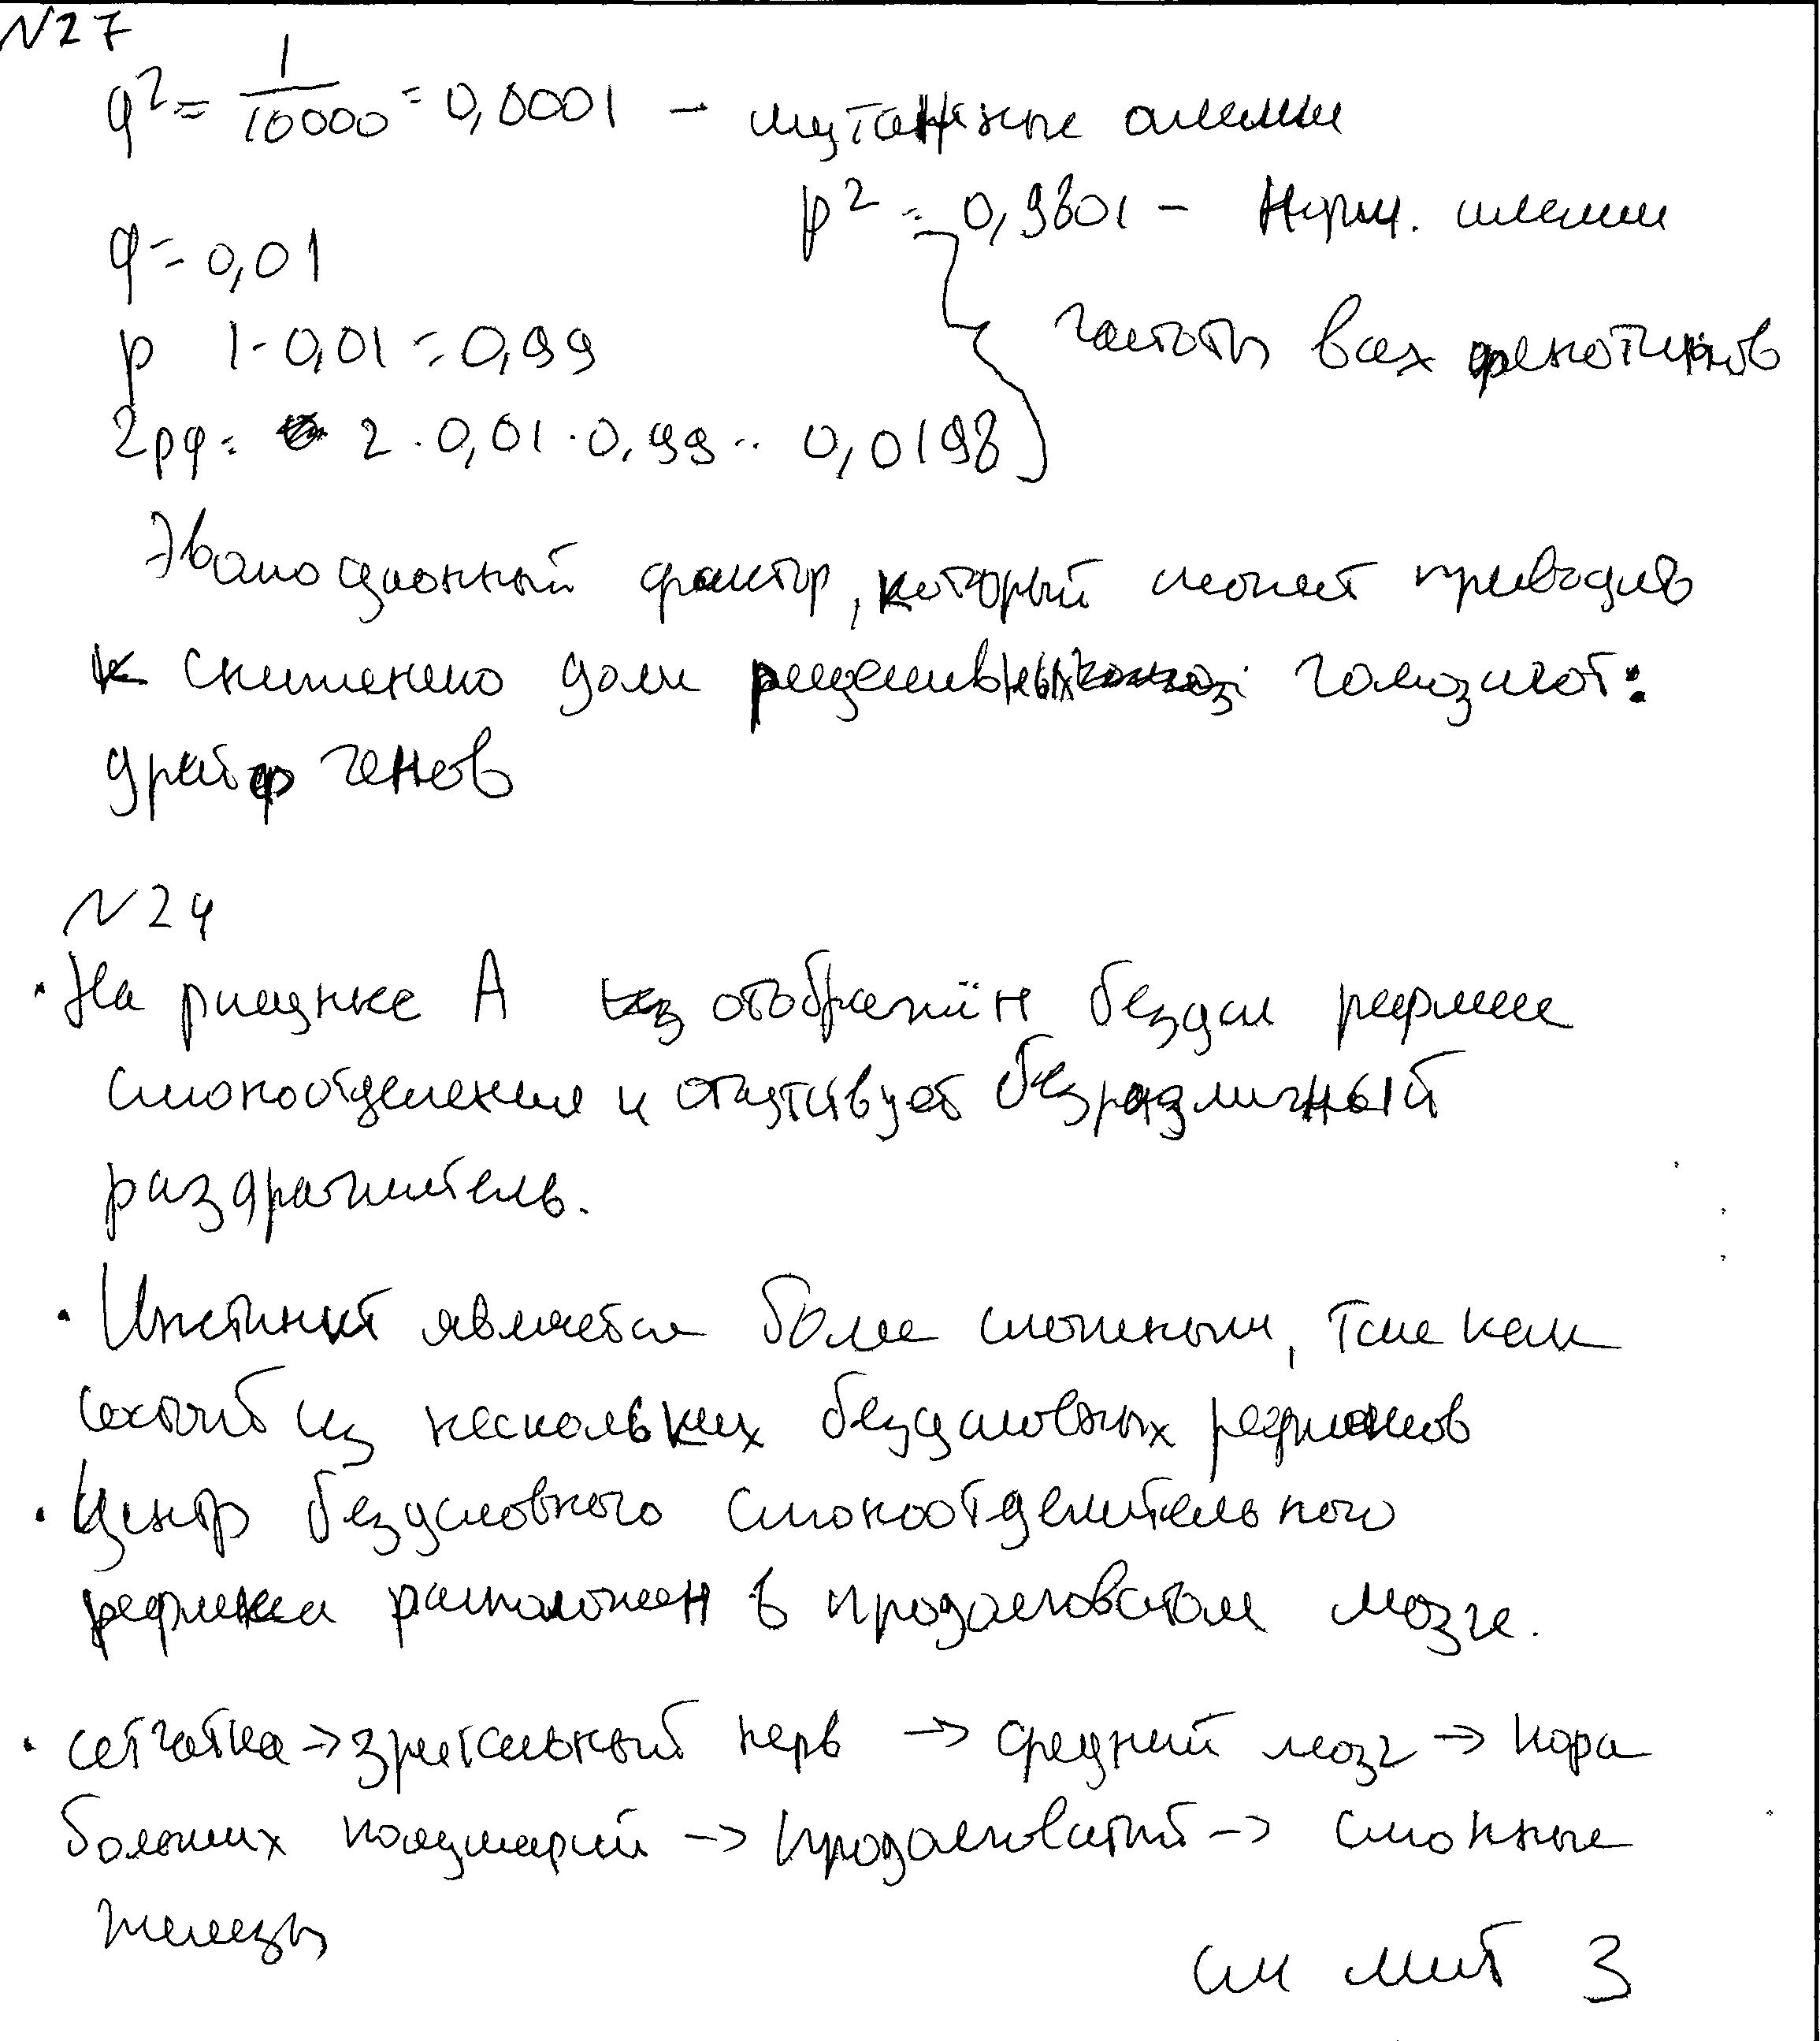 N27
q² = 1/10000 = 0,0001 – мутантные аллели
p² = 0,9801 – норм. аллели
q = 0,01
p 1-0,01 = 0,99
частоты всех фенотипов
2pq = 2 · 0,01 · 0,99 = 0,0198
Эволюционный фактор, который может приводить
к снижению доли рецессивных гомозигот:
дрейф генов
N24
· На рисунке А отображён безусл рефлекс
слюноотделения и отсутствует безразличный
раздражитель.
· Инстинкт является более сложным, так как
состоит из нескольких безусловных рефлексов
· Центр безусловного слюноотделительного
рефлекса расположен в продолговатом мозге.
· сетчатка → зрительный нерв → средний мозг → кора
больших полушарий → продолговатый → слюнные
железы
см лист 3